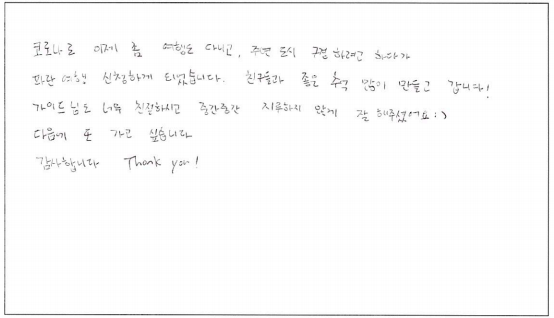 코로나로 이제 좀 여행도 다니고, 주변 도시 구경하려고 하다가
관련 여행 신청하게 되었습니다. 친구들과 좋은 추억 많이 만들고 갑니다!
가이드님도 너무 친절하시고 중간중간 지루하지 않게 잘 해주셨어요:)
다음에 또 가고 싶습니다
감사합니다 Thank you!